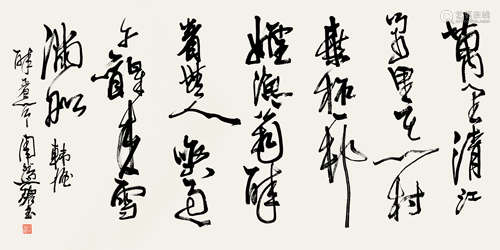 萬里清江
万里天一村
桑柘一邨
煙漁翁醉
著無人喚過
午醒來雪
滿船
韓偓
醉著
周慧珺書